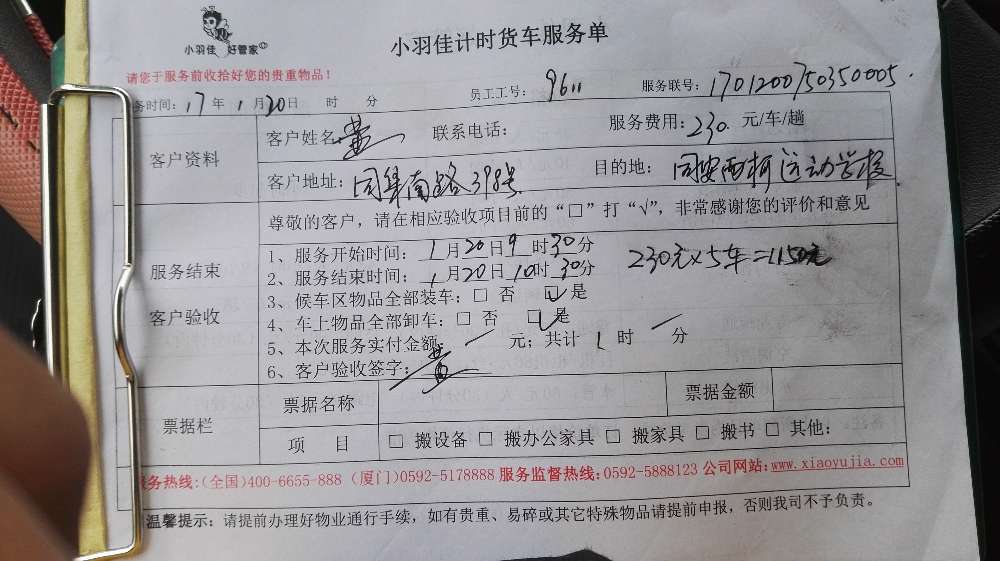 小羽佳 好管家
小羽佳计时货车服务单
请您于服务前收拾好您的贵重物品！
务时间：17年1月20日 时 分 员工工号：9611 服务联号：170120075035005.
客户资料
客户姓名：黄 联系电话： 服务费用：230. 元/车/趟
客户地址：同集南路398号 目的地：同安西柯运动学校
服务结束
客户验收
尊敬的客户，请在相应验收项目前的“□”打“√”，非常感谢您的评价和意见
1、服务开始时间：1月20日9时30分
2、服务结束时间：1月20日10时30分
230元×5车=1150元
3、候车区物品全部装车：□ 否 ☑ 是
4、车上物品全部卸车：□ 否 ☑ 是
5、本次服务实付金额：／元；共计 1 时 ／ 分
6、客户验收签字：黄
票据栏
票据名称 票据金额
项 目 □ 搬设备 □ 搬办公家具 □ 搬家具 □ 搬书 □ 其他：
服务热线:(全国)400-6655-888 (厦门)0592-5178888 服务监督热线:0592-5888123 公司网站:www.xiaoyujia.com
温馨提示：请提前办理好物业通行手续，如有贵重、易碎或其它特殊物品请提前申报，否则我司不予负责。